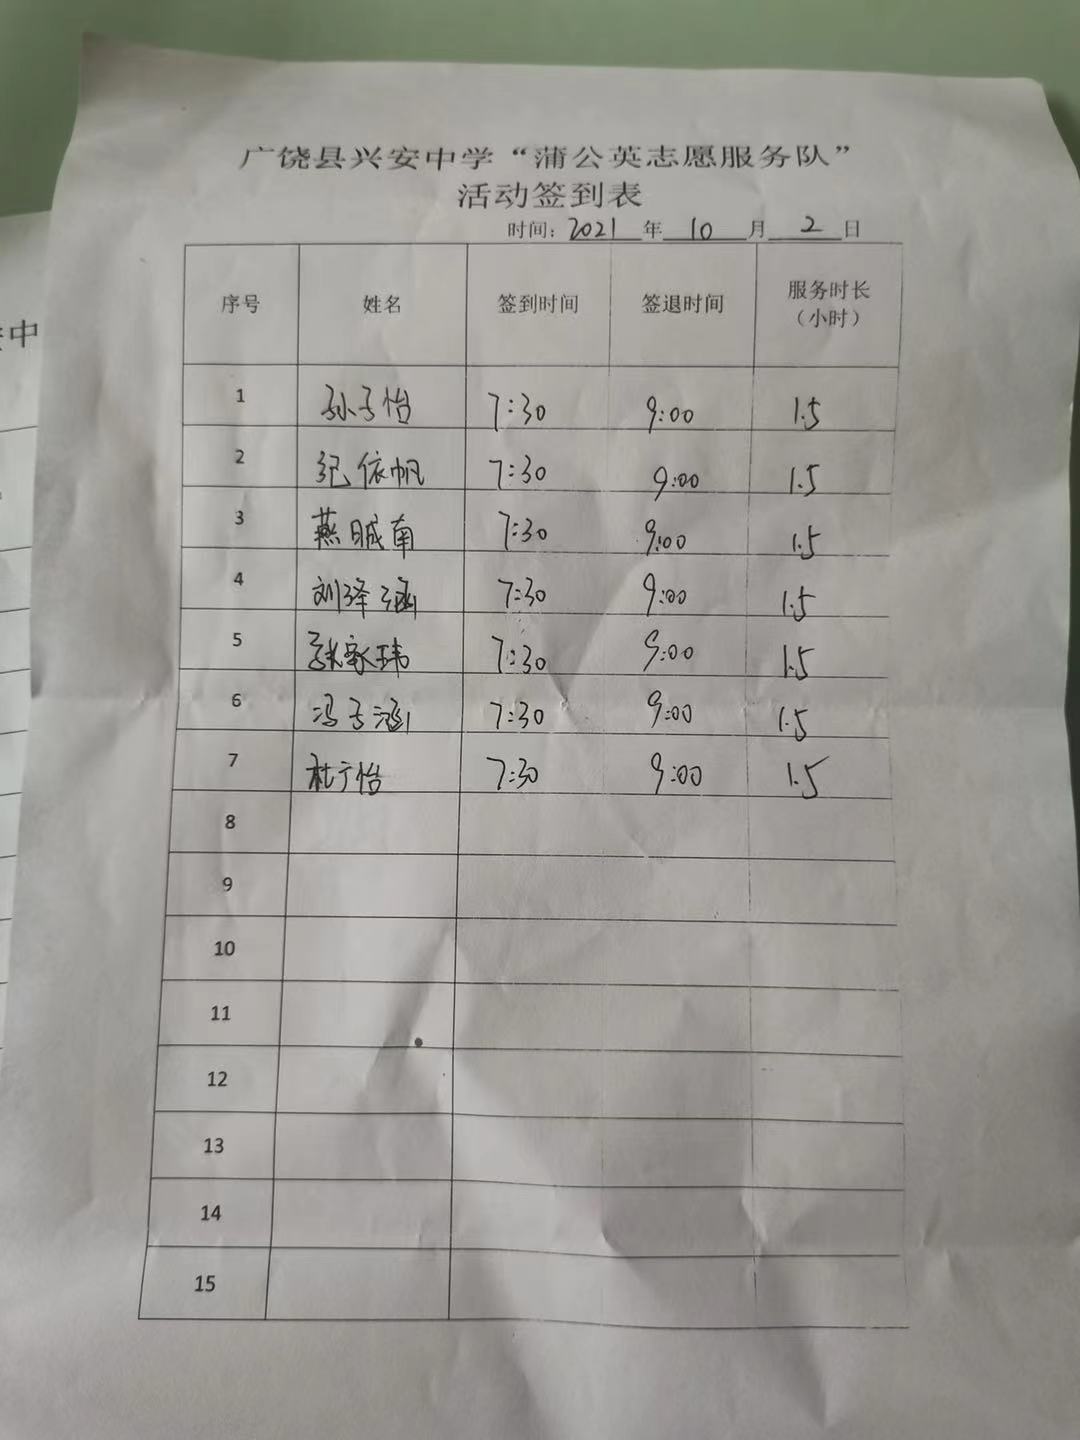 广饶县兴安中学“蒲公英志愿服务队”
活动签到表
时间：2021年10月2日
序号 姓名 签到时间 签退时间 服务时长（小时）
1 孙子怡 7:30 9:00 1.5
2 纪依帆 7:30 9:00 1.5
3 燕晠南 7:30 9:00 1.5
4 刘泽涵 7:30 9:00 1.5
5 张家玮 7:30 9:00 1.5
6 冯子涵 7:30 9:00 1.5
7 杜宁怡 7:30 9:00 1.5
8
9
10
11
12
13
14
15
中